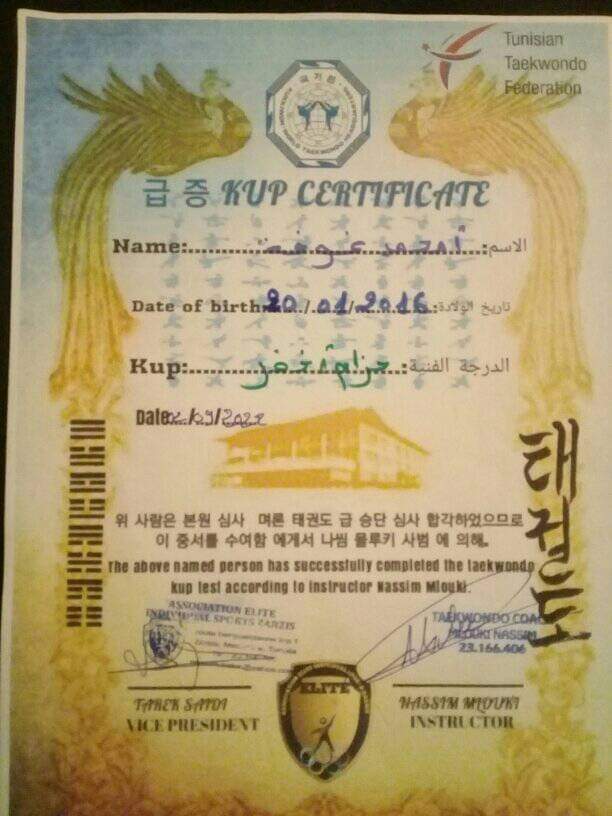 Tunisian
Taekwondo
Federation
국기원
급 증 KUP CERTIFICATE
Name: أمحمد :الاسم
Date of birth 20/01/2016 :تاريخ الولادة
Kup: حزام أخضر :الدرجة الفنية
Date /09/2022
위 사람은 본원 심사 며론 태권도 급 승단 심사 합각하었으므로
이 중서를 수여함 에게서 나씸 믈루키 사범 에 의해.
The above named person has successfully completed the taekwondo
kup test according to instructor Nassim Mlouki.
태권도
ASSOCIATION ELITE
INDIVIDUAL SPORTS ZARZIS
TAEKWONDO COACH
MLOUKI NASSIM
23.166.406
TAREK SAIDI
VICE PRESIDENT
ELITE
NASSIM MLOUKI
INSTRUCTOR